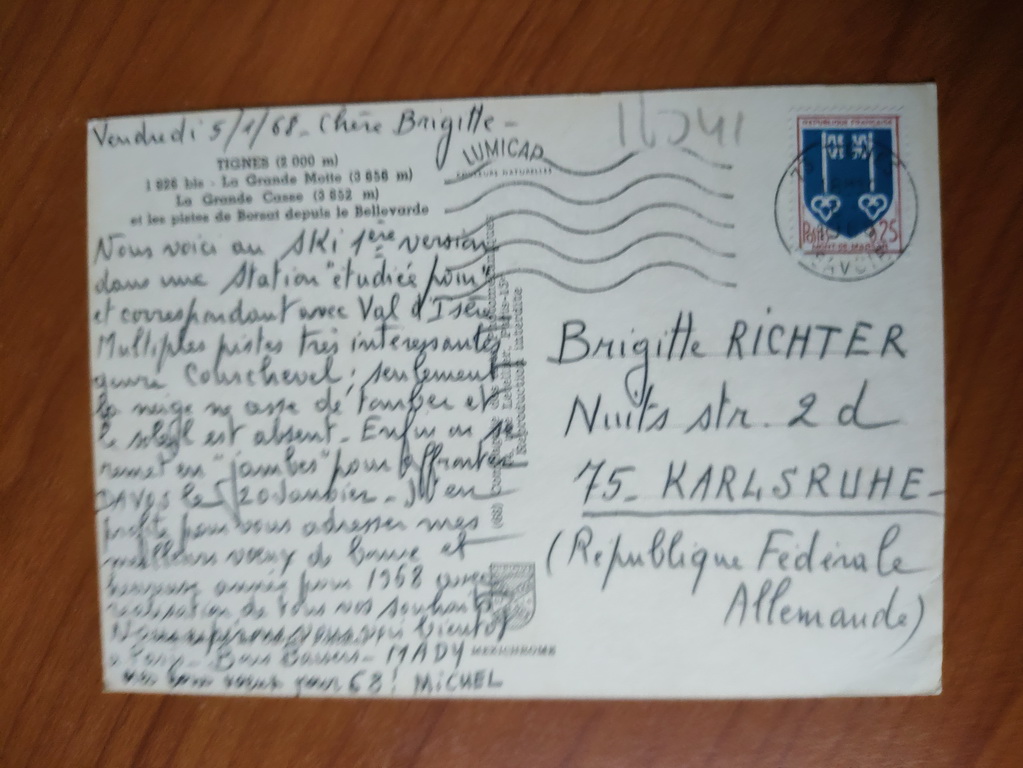 Vendredi 5/1/68 - Chère Brigitte -
TIGNES (2 000 m)
1 826 bis - La Grande Motte (3 656 m)
La Grande Casse (3 852 m)
et les pistes de Borsat depuis le Bellevarde
Nous voici au SKi 1ère version
dans une station "étudiée pour"
et correspondant avec Val d'Isère
Multiples pistes très intéressantes
genre Courchevel ; seulement
la neige ne cesse de tomber et
le soleil est absent - Enfin on se
remet en "jambes" pour affronter
DAVOS le 20 Janvier - J'en
profite pour vous adresser mes
meilleurs voeux de bonne et
heureuse année pour 1968 avec
réalisation de tous vos souhaits
Nous espérons vous voir bientôt
à Paris - Bons Baisers - MADY
bons voeux pour 68 ! MICHEL
LUMICAP
COULEURS NATURELLES
Reproduction interdite
MEXICHROME
REPUBLIQUE FRANCAISE
POSTES 0,25
MONT-DE-MARSAN
SAVOIE
Brigitte RICHTER
Nuits str. 2 d
75 - KARLSRUHE -
(République Fédérale
Allemande)